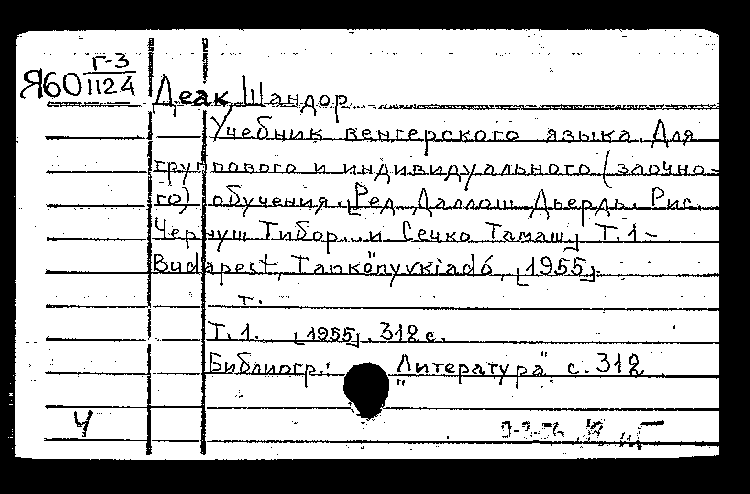 Г-3
Я60 1124
Деак, Шандор
Учебник венгерского языка. Для
группового и индивидуального (заочно-
го) обучения. [Ред. Даллош Дьердь. Рис.
Чернуш Тибор... и Сечко Тамаш] Т.1-
Budapest, Tankönyvkiadó, [1955].
т.
Т.1. [1955]. 312 с.
Библиогр.: „Литература" с. 312
Ч